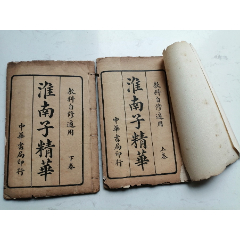 教科自修適用
淮南子精華
下卷
中華書局印行
教科自修適用
淮南子精華
上卷
中華書局印行